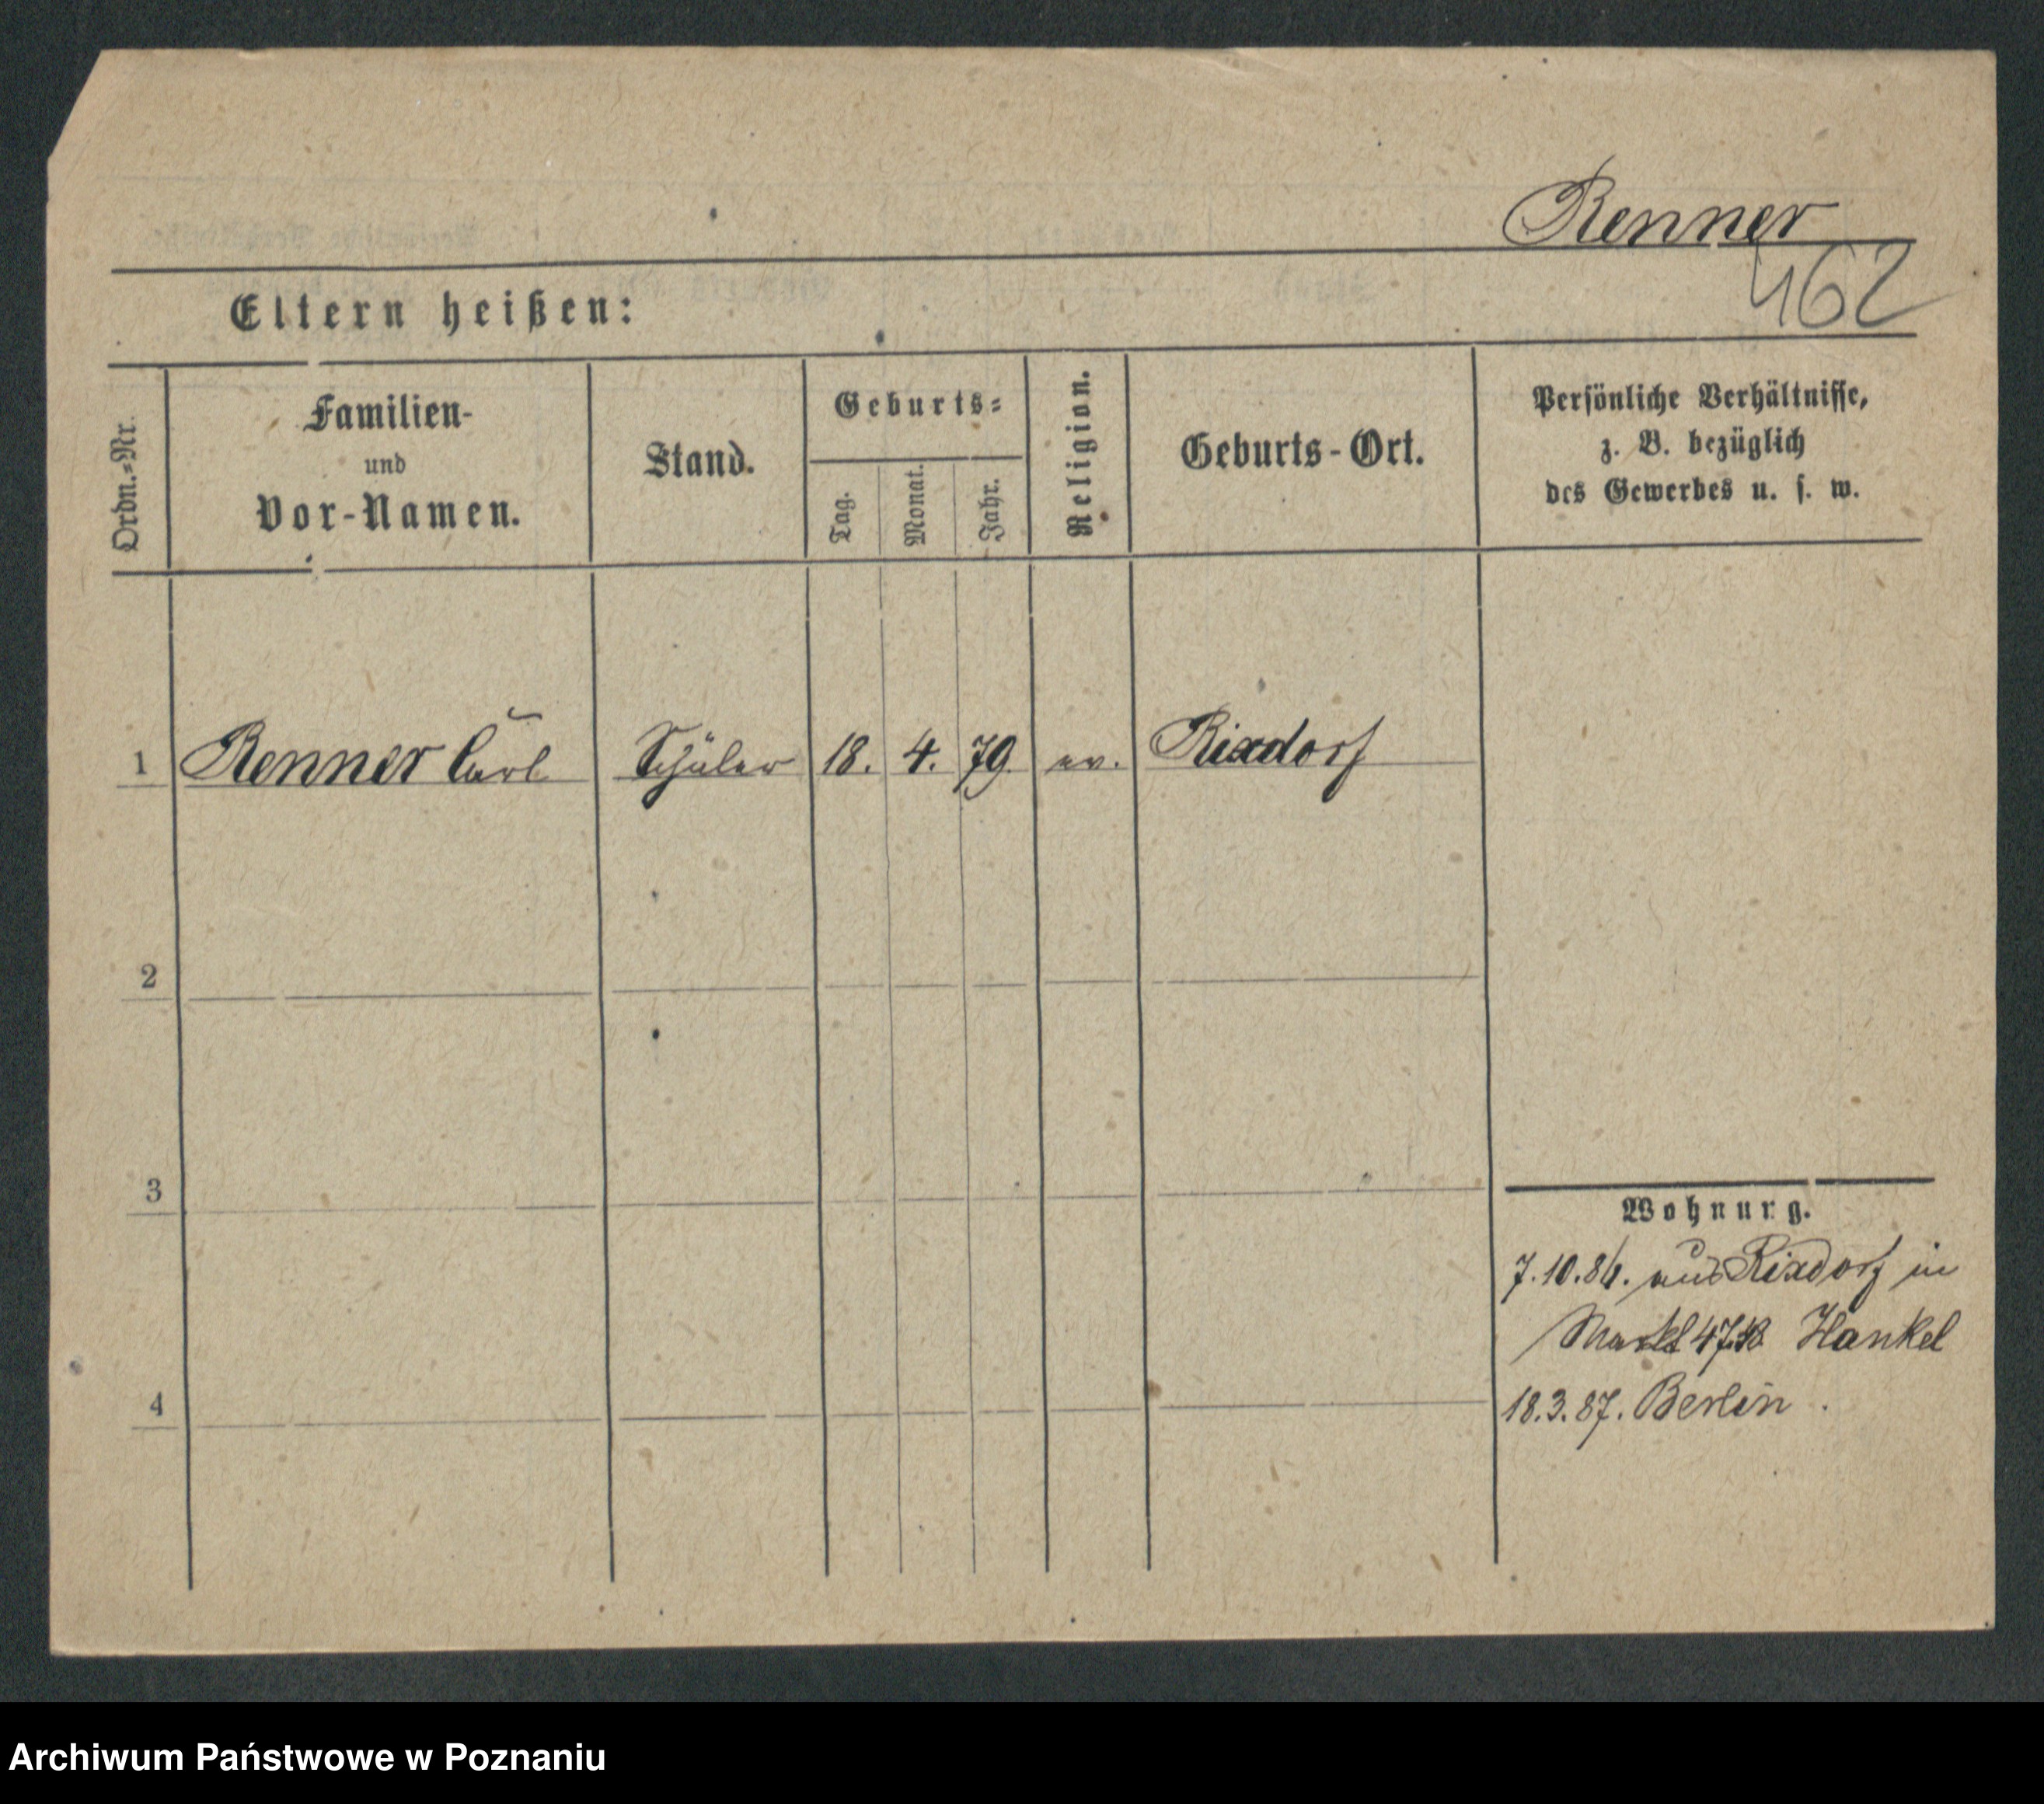 Renner
462
Eltern heißen:
Ordn.=Nr.
Familien-
und
Vor-Namen.
Stand.
Geburts=
Tag.
Monat.
Jahr.
Religion.
Geburts-Ort.
Persönliche Verhältnisse,
z. B. bezüglich
des Gewerbes u. s. w.
1 Renner Carl Schüler 18. 4. 79. ev. Rixdorf
2
3
4
Wohnung.
7.10.86. aus Rixdorf in
Markt Hankel
18.3.87. Berlin.
Archiwum Państwowe w Poznaniu